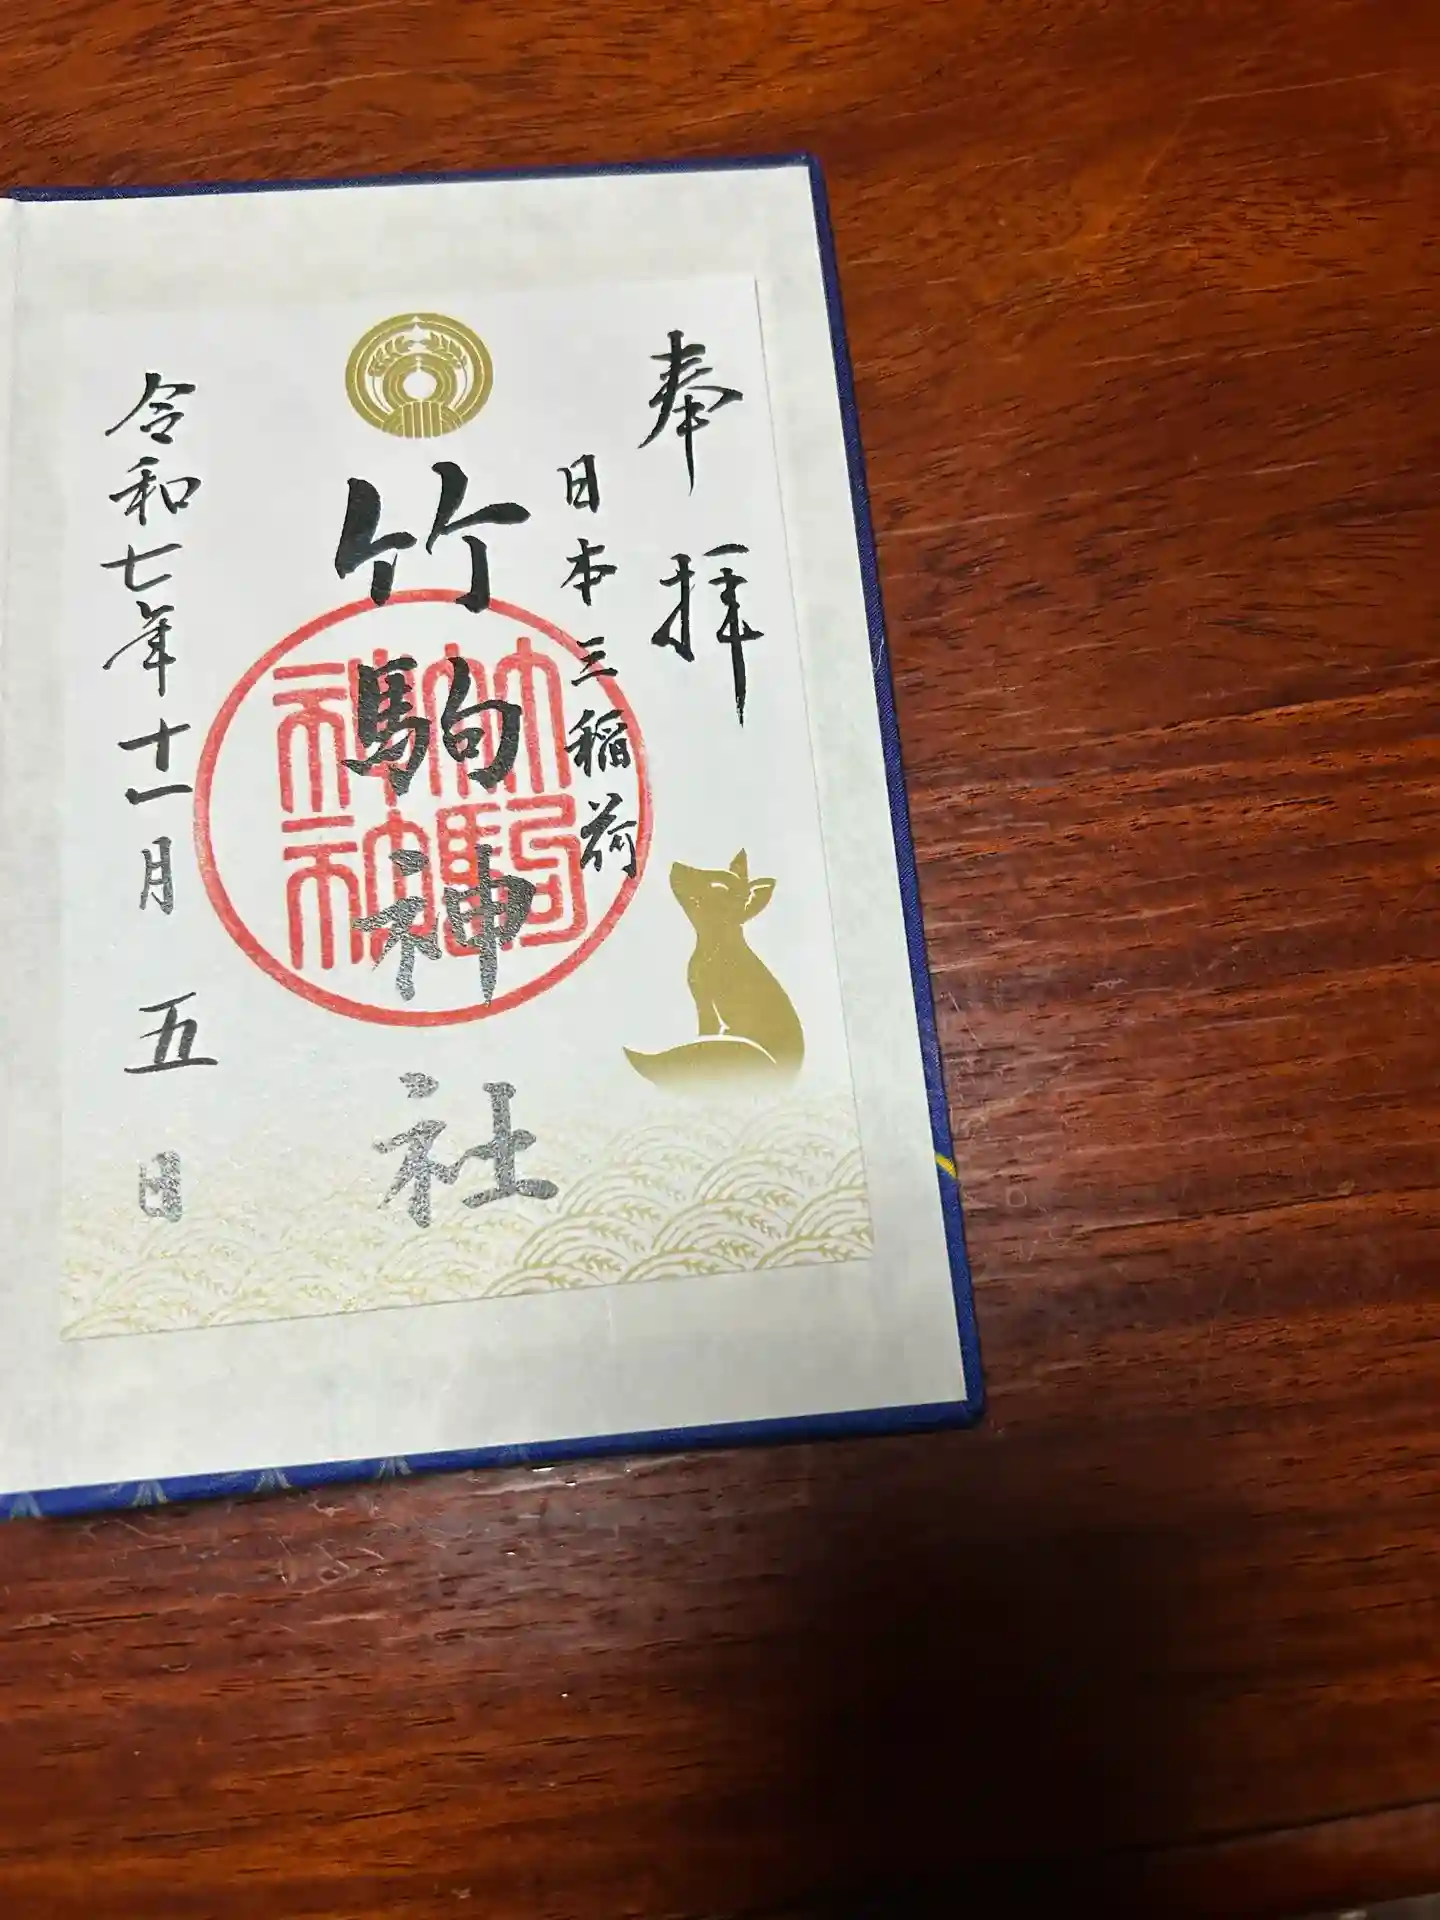 奉拝
日本三稲荷
竹駒神社
竹駒神社
令和七年十一月五日